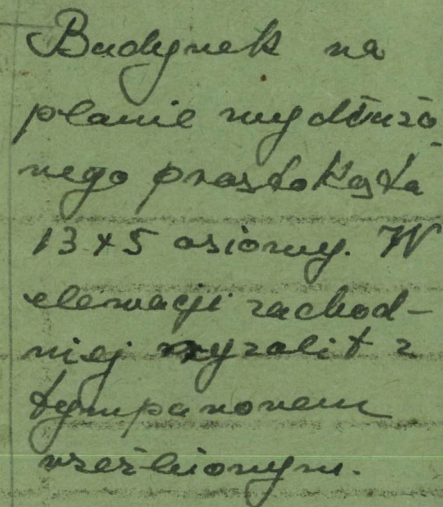 Budynek na
planie wydłużo
nego prostokąta
13x5 osiowy. W
elewacji zachod-
niej ryzalit z
tympanonem
rzeźbionym.